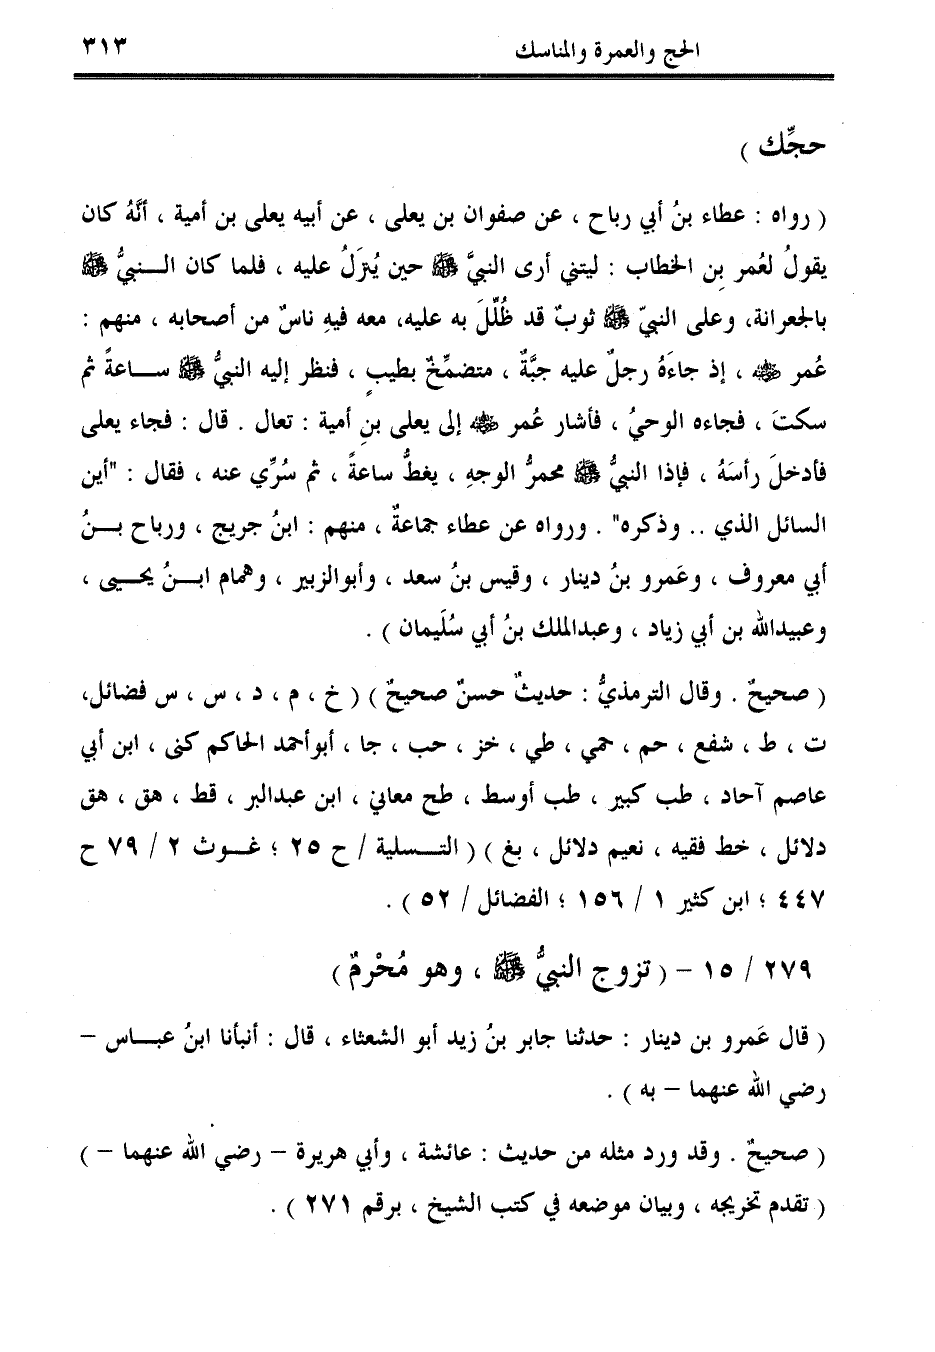 الحج والعمرة والمناسك ٣١٣
حجِّك )
( رواه : عطاء بنُ أبي رباح ، عن صفوان بن يعلى ، عن أبيه يعلى بن أمية ، أنَّهُ كان
يقولُ لعُمر بنِ الخطاب : ليتني أرى النبيَّ ﷺ حين يُنزَلُ عليه ، فلما كان الـنبيُّ ﷺ
بالجعرانة، وعلى النبيّ ﷺ ثوبٌ قد ظُلِّلَ به عليه، معه فيهِ ناسٌ من أصحابه ، منهم :
عُمر ﷺ ، إذ جاءَهُ رجلٌ عليه جبَّةٌ ، متضمِّخٌ بطيبٍ ، فنظر إليه النبيُّ ﷺ ساعةً ثم
سكتَ ، فجاءه الوحيُ ، فأشار عُمر ﷺ إلى يعلى بنِ أمية : تعال . قال : فجاء يعلى
فأدخلَ رأسَهُ ، فإذا النبيُّ ﷺ محمرُّ الوجهِ ، يغطُّ ساعةً ، ثم سُرِّي عنه ، فقال : "أين
السائل الذي .. وذكره" . ورواه عن عطاء جماعةٌ ، منهم : ابنُ جريج ، ورباح بـنُ
أبي معروف ، وعَمرو بنُ دينار ، وقيس بنُ سعد ، وأبوالزبير ، وهمام ابـنُ يحيى ،
وعبيدالله بن أبي زياد ، وعبدالملك بنُ أبي سُلَيمان ) .
( صحيحٌ . وقال الترمذيُّ : حديثٌ حسنٌ صحيحٌ ) ( خ ، م ، د ، س ، س فضائل،
ت ، ط ، شفع ، حم ، حمي ، طي ، خز ، حب ، جا ، أبوأحمد الحاكم كنى ، ابن أبي
عاصم آحاد ، طب كبير ، طب أوسط ، طح معاني ، ابن عبدالبر ، قط ، هق ، هق
دلائل ، خط فقيه ، نعيم دلائل ، بغ ) ( التـسلية / ح ٢٥ ؛ غـوث ٢ / ٧٩ ح
٤٤٧ ؛ ابن كثير ١ / ١٥٦ ؛ الفضائل / ٥٢ ) .
٢٧٩ / ١٥ - ( تزوج النبيُّ ﷺ ، وهو مُحْرمٌ )
( قال عَمرو بن دينار : حدثنا جابر بنُ زيد أبو الشعثاء ، قال : أنبأنا ابنُ عبـاس -
رضي الله عنهما - به ) .
( صحيحٌ . وقد ورد مثله من حديث : عائشة ، وأبي هريرة - رضي الله عنهما - )
( تقدم تخريجه ، وبيان موضعه في كتب الشيخ ، برقم ٢٧١ ) .